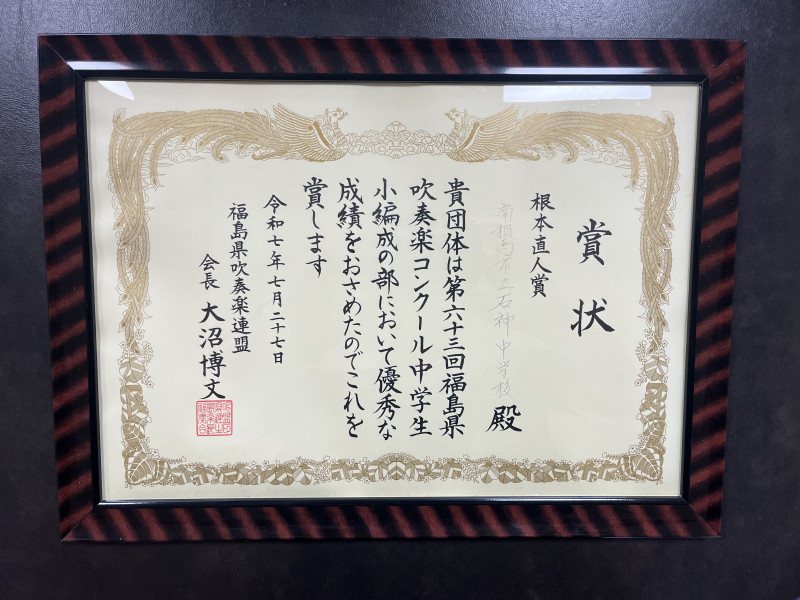 賞状
根本直人賞
南相馬市立石神中学校
殿
貴団体は第六十三回福島県
吹奏楽コンクール中学生
小編成の部において優秀な
成績をおさめたのでこれを
賞します
令和七年七月二十七日
福島県吹奏楽連盟
会長 大沼博文